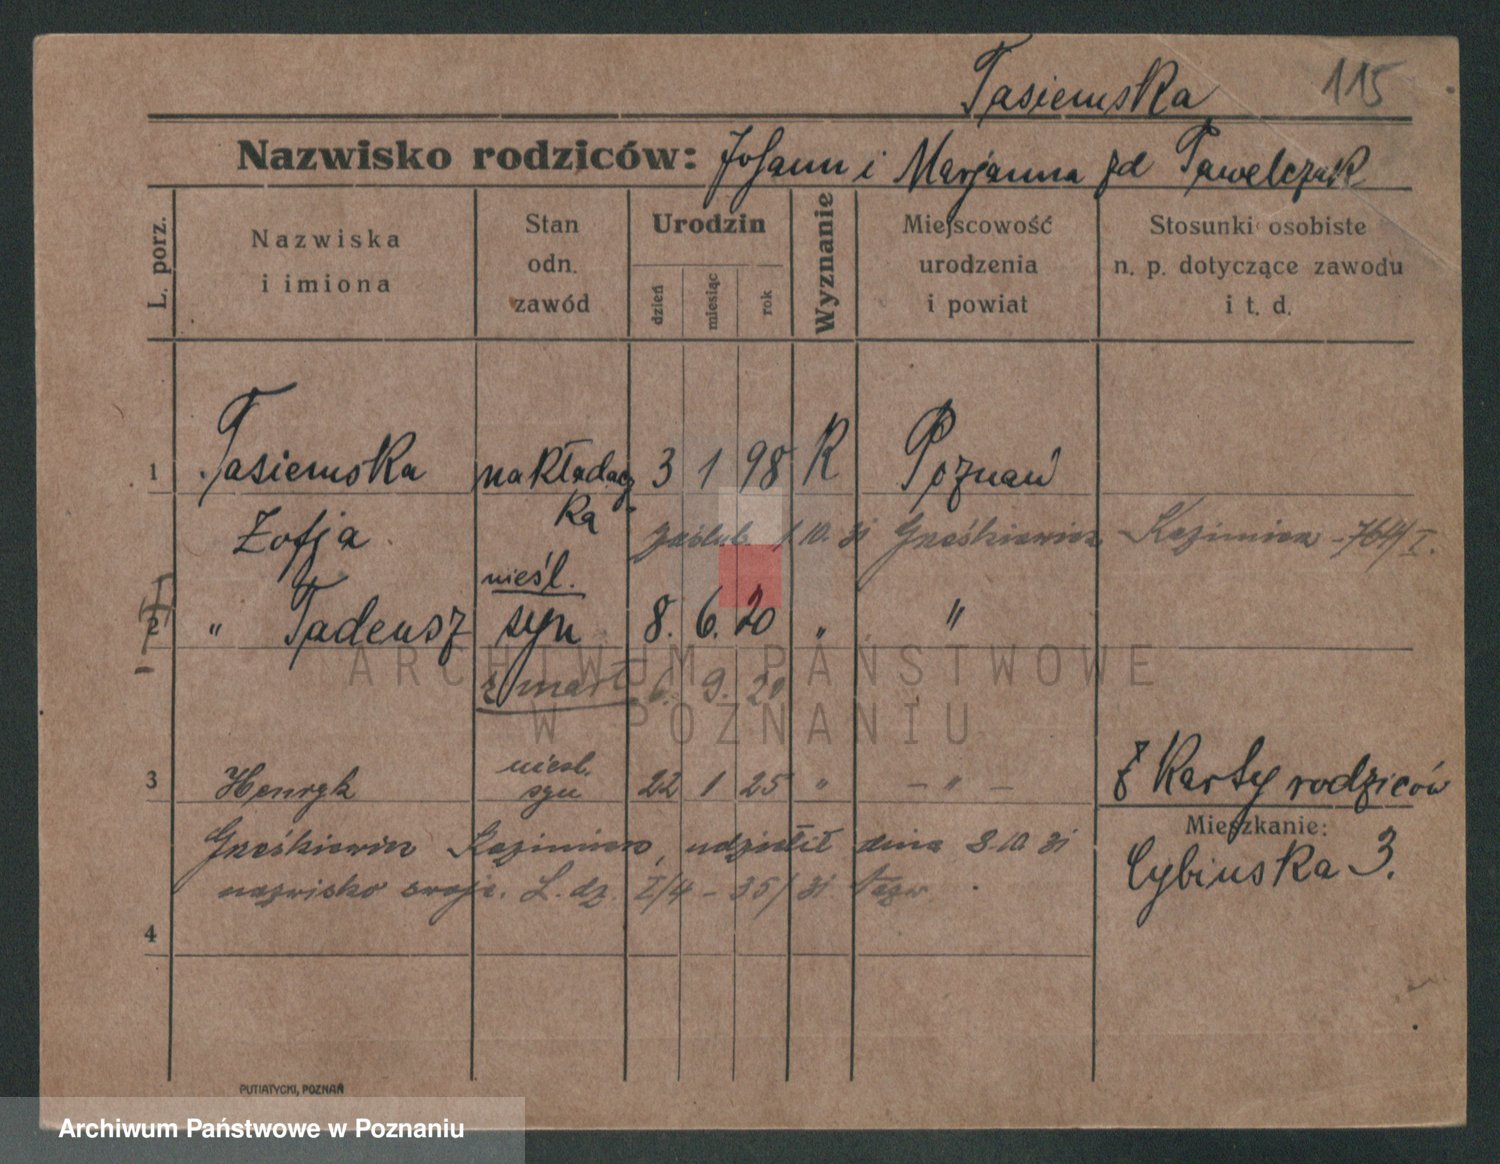 Tasiemska 115
Nazwisko rodziców: Johann i Marjanna zd Pawelczak
L. porz.
Nazwiska i imiona
Stan odn. zawód
Urodzin
dzień miesiąc rok
Wyznanie
Miejscowość urodzenia i powiat
Stosunki osobiste n. p. dotyczące zawodu i t. d.
1 Tasiemska nakładacz- 3 1 98 R Poznań
Zofja ka
zaślub. 1.10.31 Greśkiewicz Kazimierz - 764/I.
nieśl.
2 " Tadeusz syn 8. 6. 20 " "
zmarł 6. 9. 20
nieśl.
3 Henryk syn 22 1 25 " - " -
Z Karty rodziców
Mieszkanie:
Cybinska 3.
Greśkiewicz Kazimierz, udzielił dnia 8.10 31
nazwisko swoje. L. dz. I/4 - 35/31
4
PUTIATYCKI, POZNAŃ
ARCHIWUM PAŃSTWOWE
W POZNANIU
Archiwum Państwowe w Poznaniu